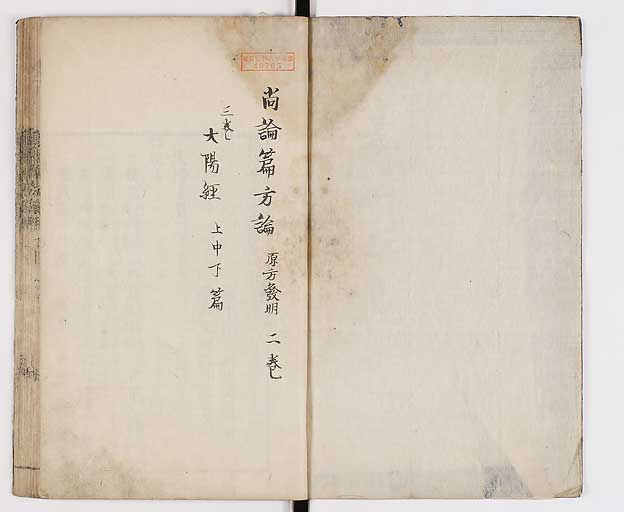 尚論篇方論 原方發明 二卷
三卷
大陽經 上中下篇
40765